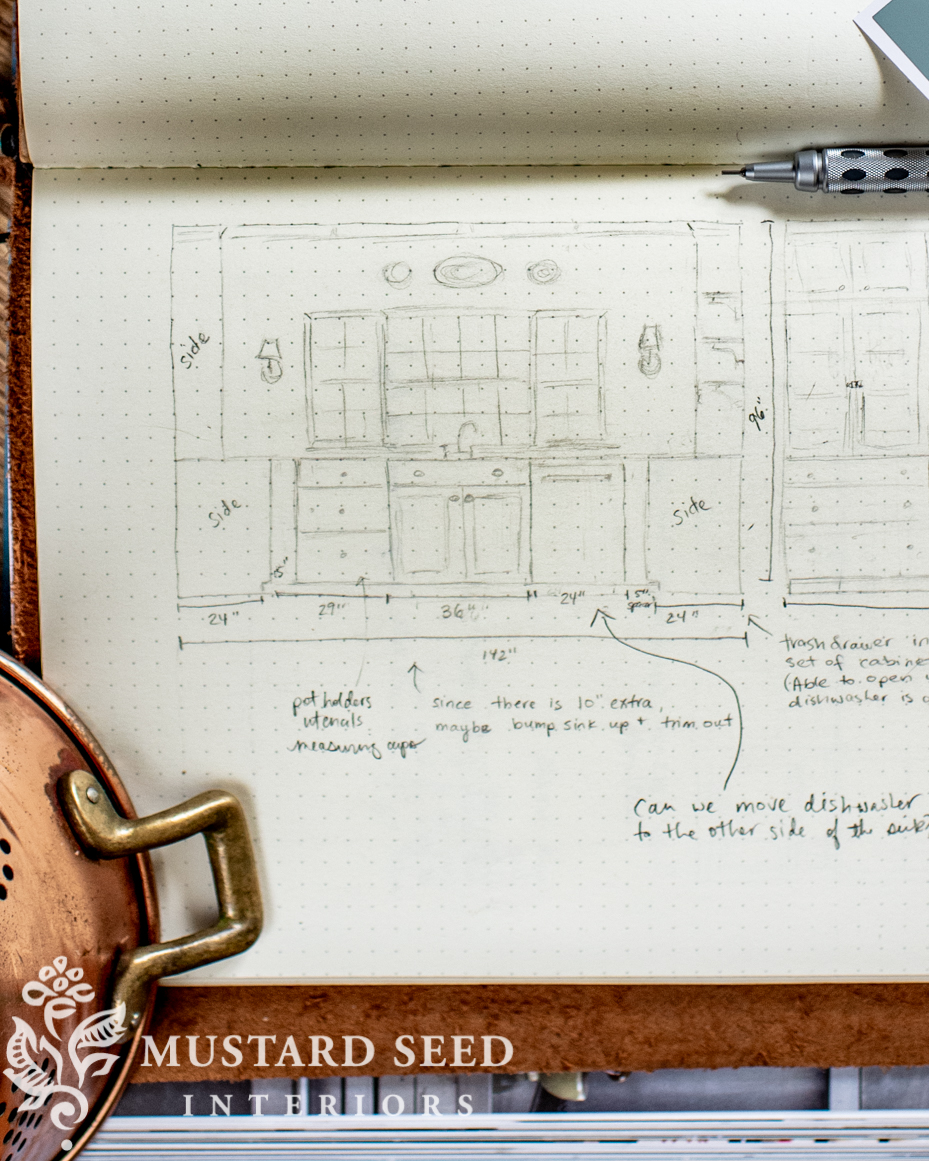 side
96"
side
side
5"
24"
29"
36"
24"
5"
spacer
24"
142"
trash drawer in
set of cabine
(Able to open
dishwasher is
pot holders
utenals
measuring cups
since there is 10" extra,
maybe bump sink up + trim out
Can we move dishwasher
to the other side of the sink
MUSTARD SEED
INTERIORS